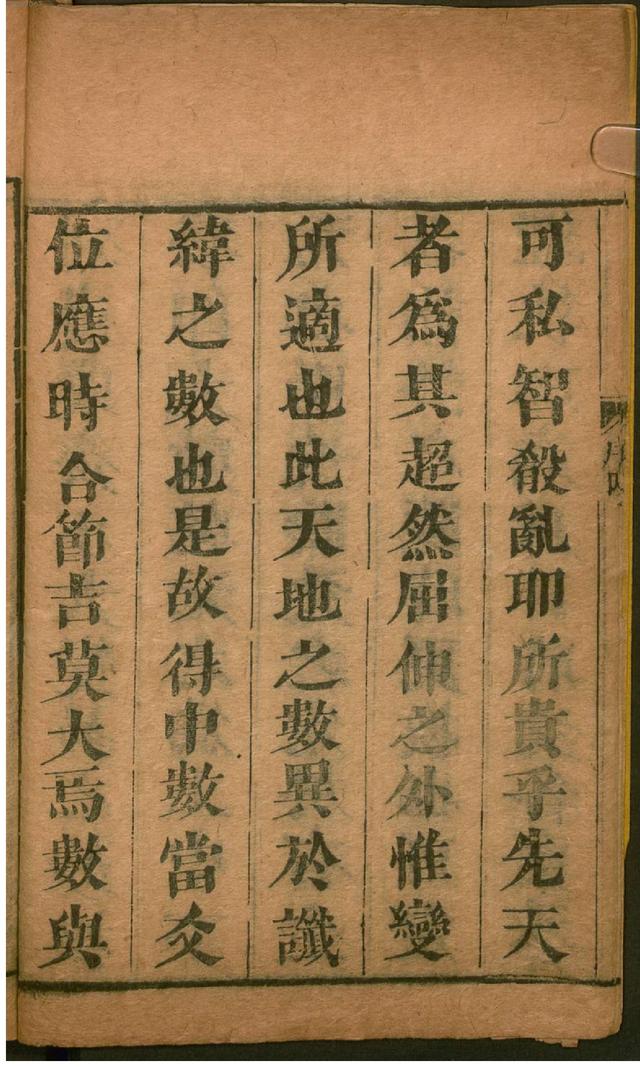 可私智殽亂耶所貴乎先天
者為其超然屈伸之外惟變
所適也此天地之數異於讖
緯之數也是故得中數當爻
位應時合節吉莫大焉數與
序四